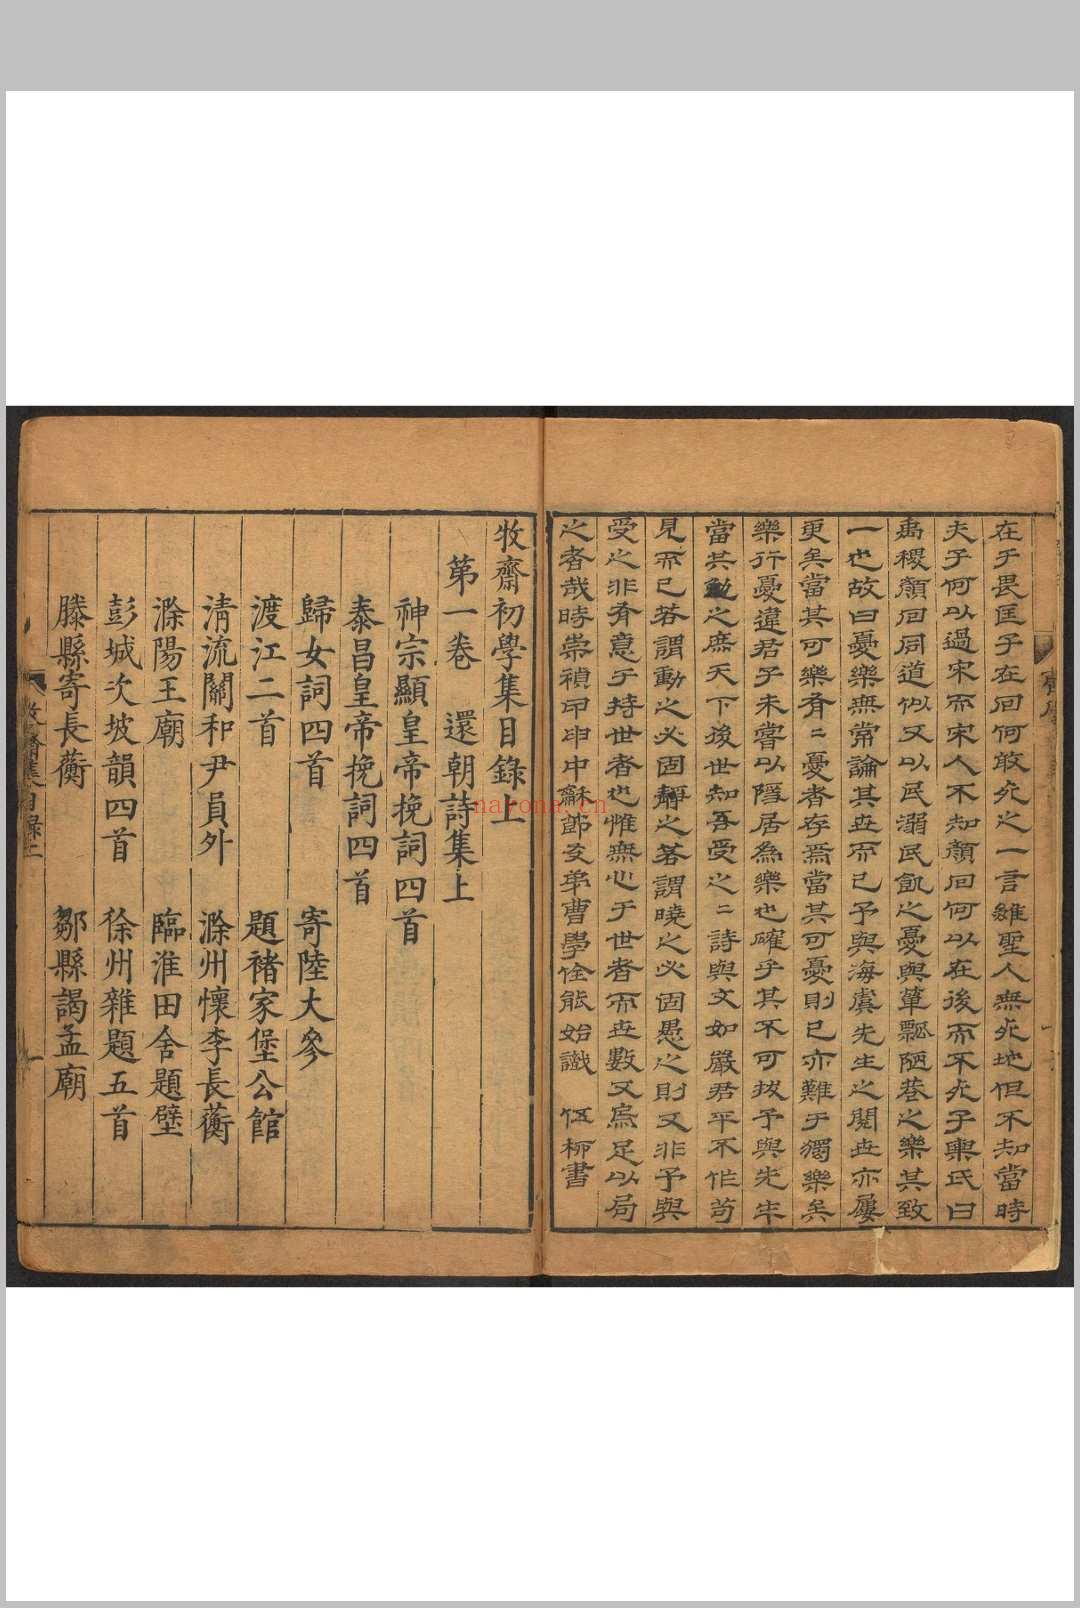 在于畏匡子在回何敢死之一言雖聖人無死地但不知當時
夫子何以過宋而宋人不知顏回何以在後而不死子輿氏曰
禹稷顏回同道似又以民溺民飢之憂與簞瓢陋巷之樂其致
一也故曰憂樂無常論其世而已予與海虞先生之閱世亦屢
更矣當其可樂有二憂者存焉當其可憂則已亦難于獨樂矣
樂行憂違君子未嘗以隱居為樂也確乎其不可拔予與先生
當其勉之庶天下後世知吾受之二詩與文如嚴君平不作苟
見而已若謂動之必固靜之若謂曉之必固愚之則又非予與
受之非有意于持世者也惟無心于世者而世數又烏足以局
之者哉時崇禎甲申中龢節友弟曹學佺能始識 伍柳書
牧齋初學集目錄上
第一卷 還朝詩集上
神宗顯皇帝挽詞四首
泰昌皇帝挽詞四首
歸女詞四首 寄陸大參
渡江二首 題褚家堡公館
清流關和尹員外 滁州懷李長蘅
滁陽王廟 臨淮田舍題壁
彭城次坡韻四首 徐州雜題五首
滕縣寄長蘅 鄒縣謁孟廟
牧齋集目錄上
nayona.cn